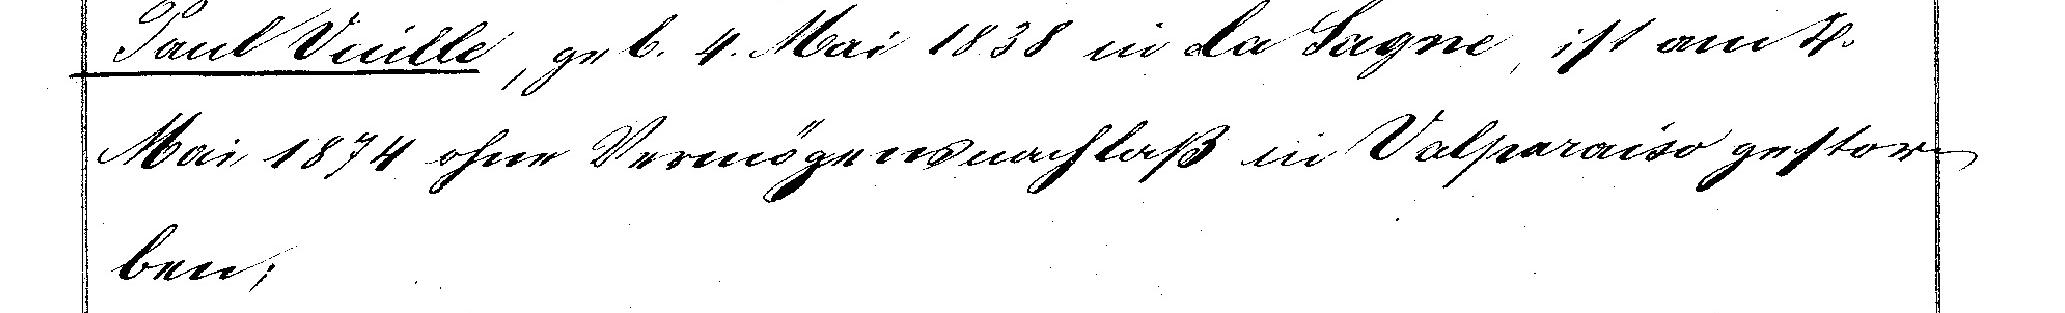 Paul Vuille, geb. 4. Mai 1838 in La Sagne, ist am 4.
Mai 1874 ohne Vermögensnachlaß in Valparaiso gestor-
ben;